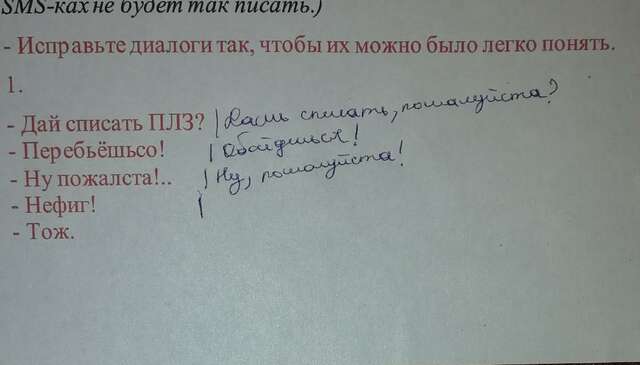 SMS-ках не будет так писать.)
- Исправьте диалоги так, чтобы их можно было легко понять.
1.
- Дай списать ПЛЗ? | Дашь списать, пожалуйста?
- Перебьёшьсо! | Обойдёшься!
- Ну пожалста!.. | Ну, пожалуйста!
- Нефиг! |
- Тож.